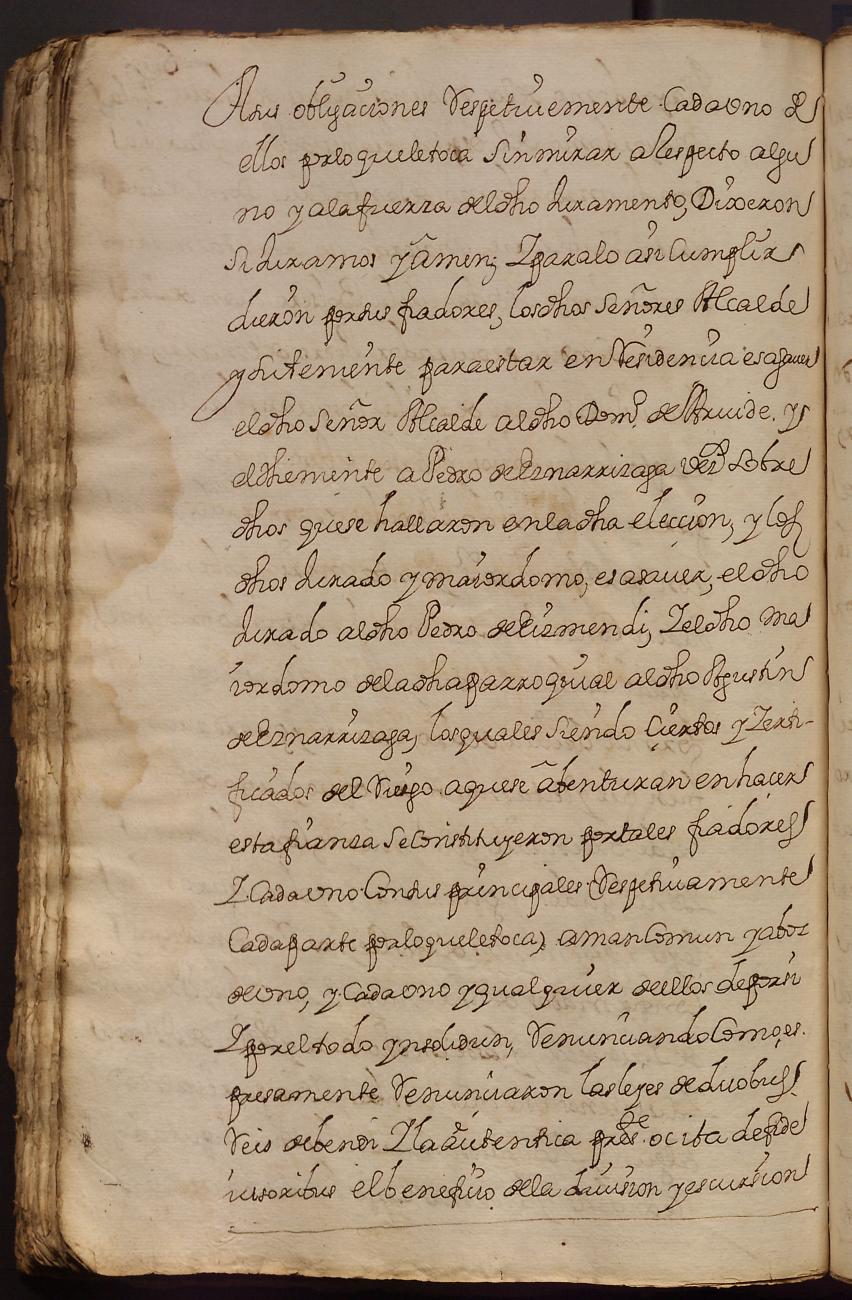 Asus obligaciones Respetivemente Cada vno de
ellos por lo que le toca Sin mirar a Respecto algu
no y a la fuerza del dho Juramento, Dixeron
Si Juramos y amen; Y para lo asi Cumplir
dieron por sus fiadores, los dhos Señores Alcalde
y su teniente para estar en Residencia es a sauer
el dho Señor Alcalde al dho Domº de Aruide. y
el dho teniente a Pedro de Eznarrizaga vezº Sobre
dhos que se hallaron en la dha eleccion, y los
dhos Jurado y maiordomo, es a sauer, el dho
Jurado al dho Pedro de Eizmendi, Y el dho ma
iordomo de la dha parroquial al dho Agustin
de Eznarrizaga, los quales Siendo Ciertos y Zerti-
ficados del Riesgo a que se abenturan en hacer
esta fianza Se Constituyeron por tales fiadores
Y Cada vno Con sus principales (Respetiuamente
Cada parte por lo que le toca) a man Comun y a boz
de vno, y Cada vno y qual quier de ellos de por si
Y por el todo ynsolidun, Renunciando Como es
presamente Renunciaron las leyes de duobus
Reis debendi Y la autentica presste ocita de fide
iusoribus el beneficio de la diuision y escursion